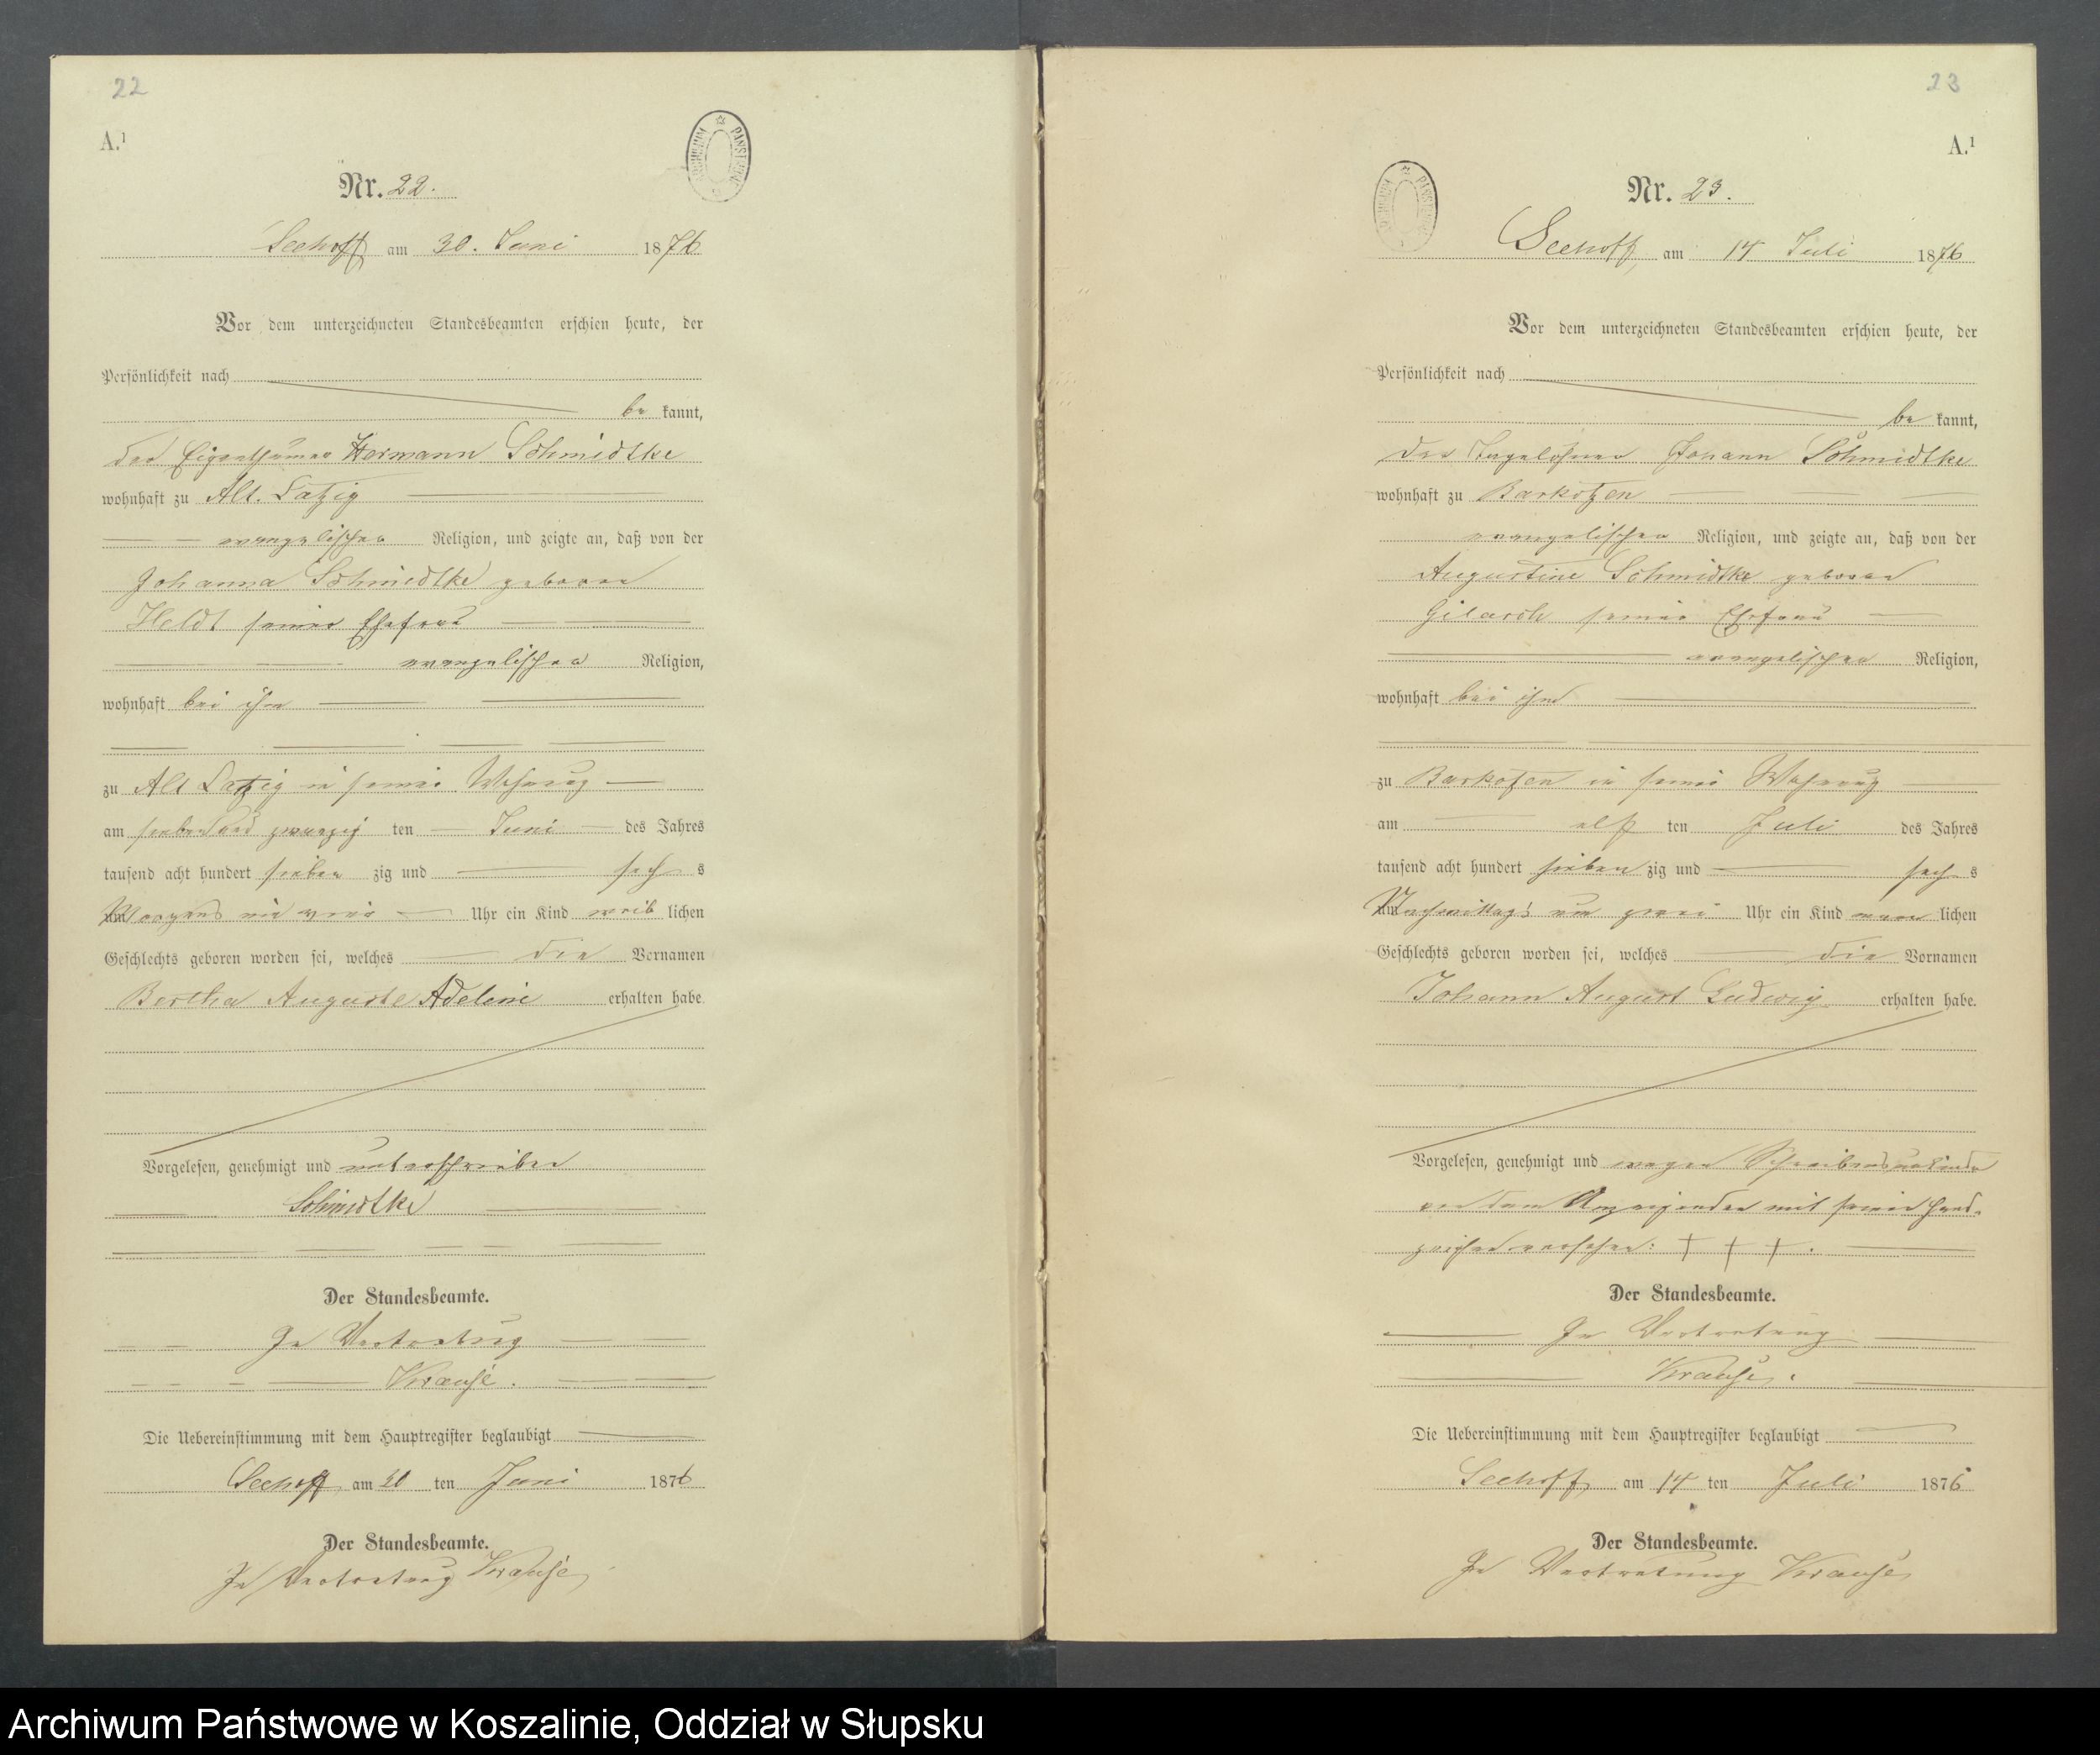 22
A.¹
ARCHIWUM PAŃSTWOWE
Nr. 22.
Seehoff am 30. Juni 1876
Vor dem unterzeichneten Standesbeamten erschien heute, der
Persönlichkeit nach
be kannt,
der Eigenthümer Hermann Schmidtke
wohnhaft zu Alt. Latzig
evangelischer Religion, und zeigte an, daß von der
Johanna Schmidtke geborene
Heldt seiner Ehefrau
evangelischer Religion,
wohnhaft bei ihm
zu Alt Latzig in seiner Wohnung
am sieben und zwanzig ten Juni des Jahres
tausend acht hundert sieben zig und sech s
um Morgens um vier Uhr ein Kind weib lichen
Geschlechts geboren worden sei, welches die Vornamen
Bertha Auguste Adeline erhalten habe
Vorgelesen, genehmigt und unterschrieben
Schmidtke
Der Standesbeamte.
In Vertretung
Krause.
Die Uebereinstimmung mit dem Hauptregister beglaubigt
Seehoff am 30 ten Juni 1876
Der Standesbeamte.
In Vertretung Krause
23
A.¹
Nr. 23.
Seehoff am 14 Juli 1876
Vor dem unterzeichneten Standesbeamten erschien heute, der
Persönlichkeit nach
be kannt,
der Tagelöhner Johann Schmidtke
wohnhaft zu Barkotzen
evangelischer Religion, und zeigte an, daß von der
Augustine Schmidtke geborene
Gilasch seiner Ehefrau
evangelischer Religion,
wohnhaft bei ihm
zu Barkotzen in seiner Wohnung
am elf ten Juli des Jahres
tausend acht hundert sieben zig und sech s
um Nachmittag's um zwei Uhr ein Kind männ lichen
Geschlechts geboren worden sei, welches die Vornamen
Johann August Ludwig erhalten habe.
Vorgelesen, genehmigt und wegen Schreibensunkunde
von dem Anzeigenden mit seinem Hand-
zeichen versehen: + + + .
Der Standesbeamte.
In Vertretung
Krause.
Die Uebereinstimmung mit dem Hauptregister beglaubigt
Seehoff am 14 ten Juli 1876
Der Standesbeamte.
In Vertretung Krause
Archiwum Państwowe w Koszalinie, Oddział w Słupsku